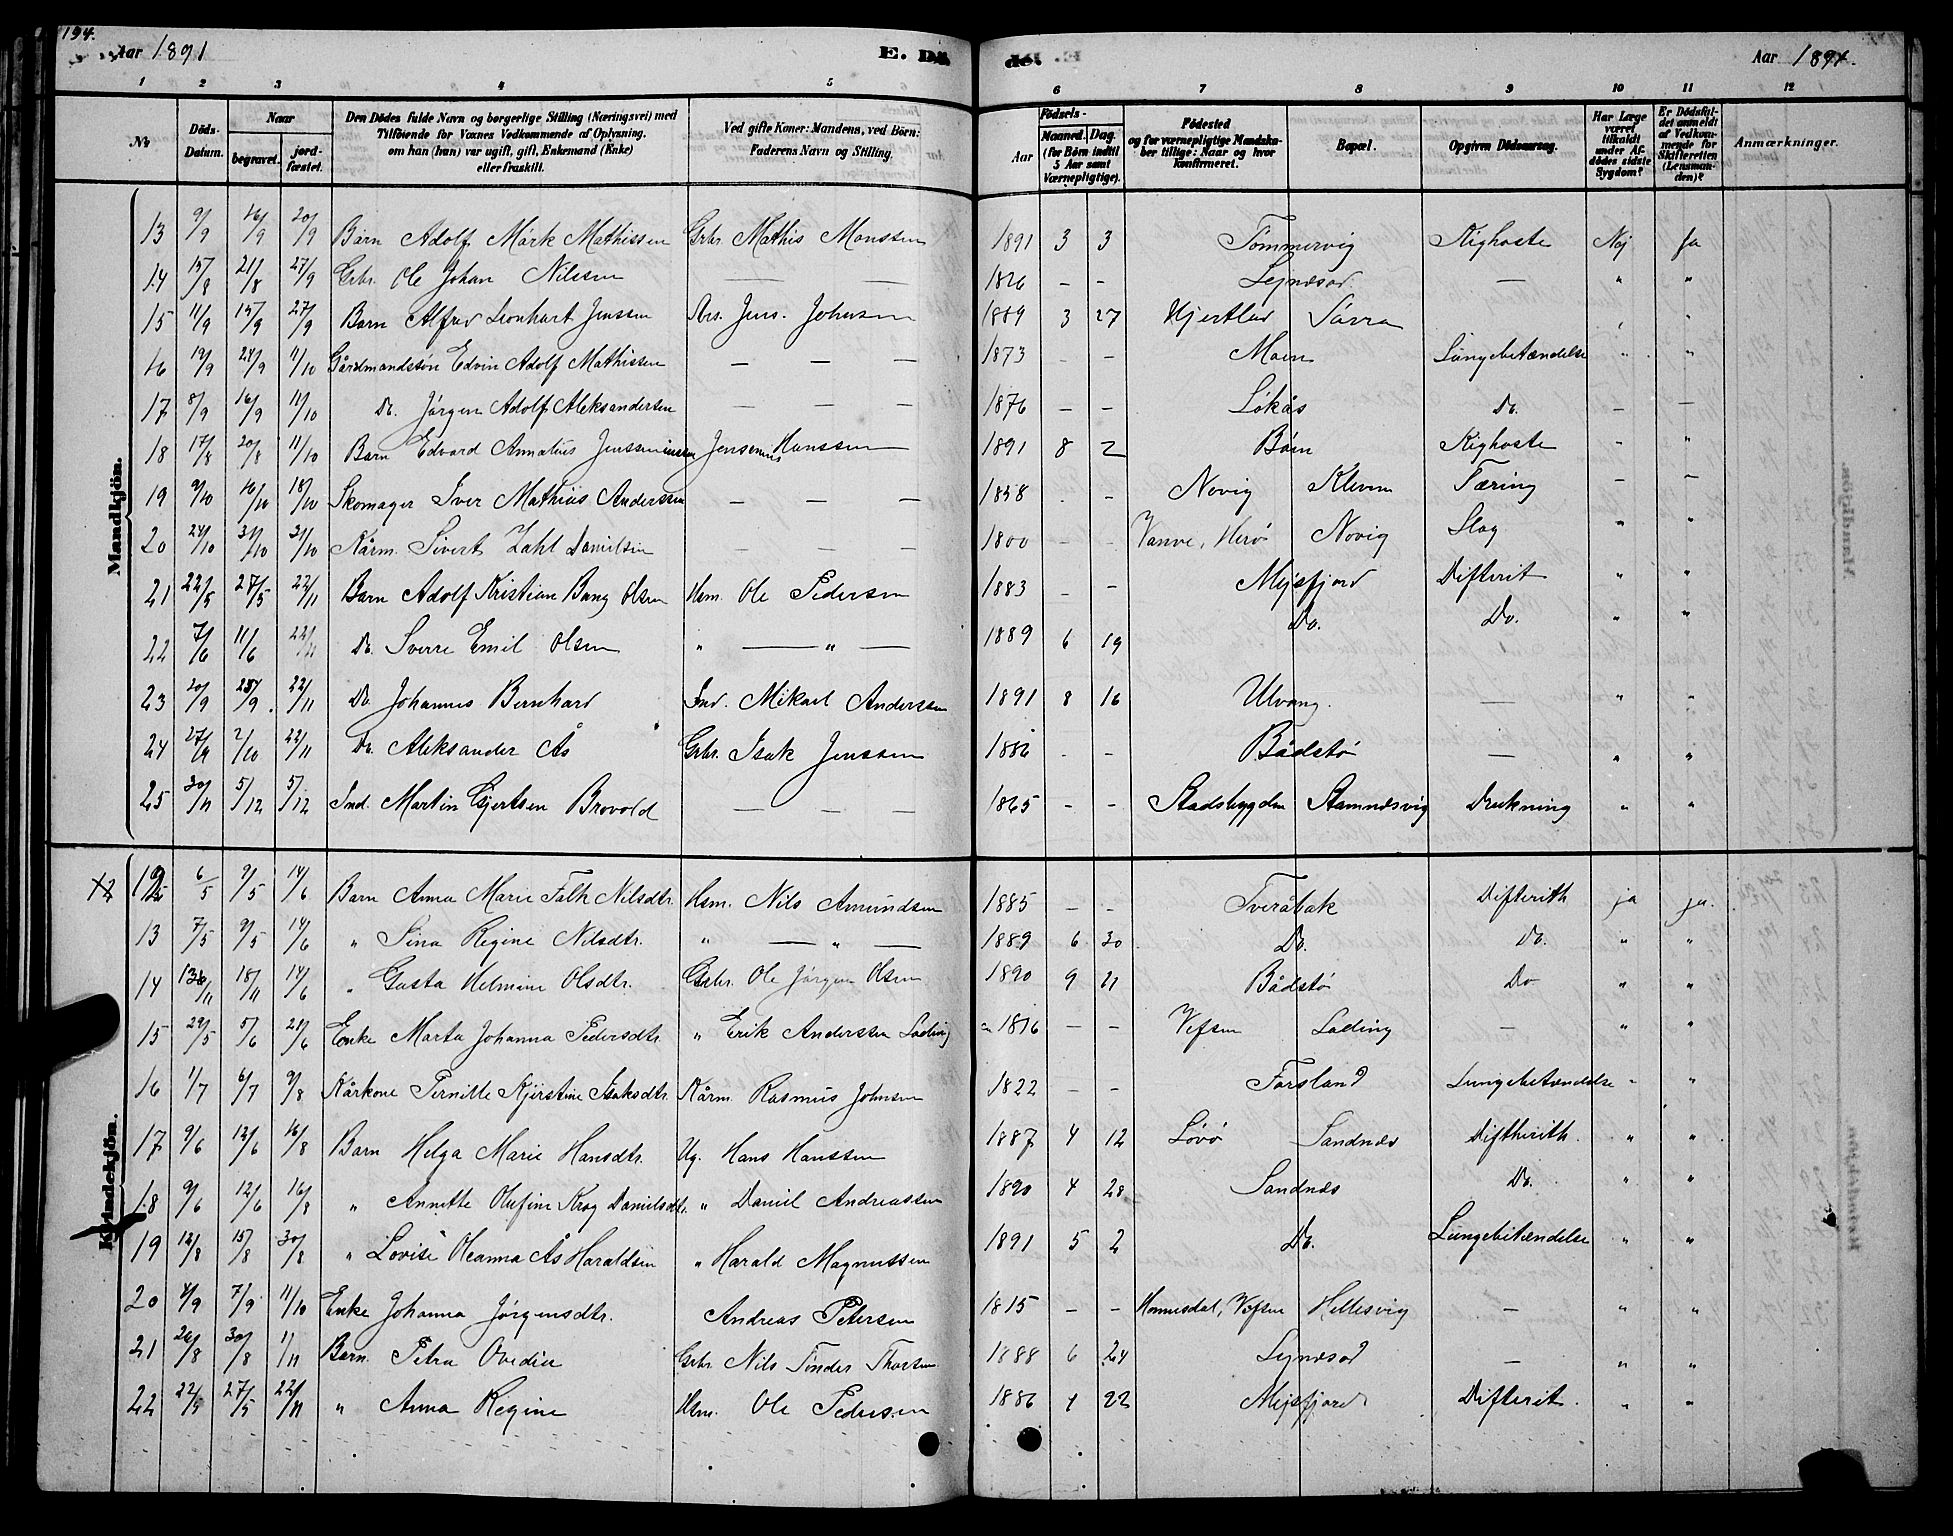 194.
Aar 1891 E. Dö de. Aar 1891.
1 2 3 4 5 6 7 8 9 10 11 12
No
Döds-Datum.
Naar
begravet.
jordfæstet.
Den Dödes fulde Navn og borgerlige Stilling (Næringsvei) med
Tilföiende for Voxnes Vedkommende af Oplysning,
om han (hun) var ugift, gift, Enkemand (Enke)
eller fraskilt.
Ved gifte Koner: Mandens, ved Børn:
Faderens Navn og Stilling.
Födsels-
Aar
Maaned. Dag.
(for Börn indtil
5 Aar samt
Værnepligtige).
Födested
og for værnepligtige Mandskaber tillige: Naar og hvor
konfirmeret.
Bopæl.
Opgiven Dödsaarsag.
Har Læge
været
tilkaldt
under Afdödes sidste
Sygdom?
Er Dödsfaldet anmeldt
af Vedkommende for
Skifteretten
(Lensmanden)?
Anmærkninger.
Mandkjön.
13 9/9 16/9 20/9 Barn Adolf Mårk Mathissen Grbr. Mathis Monssen 1891 3 3 Tømmervig Kighoste Nej Ja
14 15/8 21/8 27/9 Grbr. Ole Johan Nilssen — — 1826 - - Lejnesod. — " "
15 11/9 15/9 27/9 Barn Alfred Leonhart Jenssen Jens. Johnsen 1889 3 27 Hjertlad Sørra
16 19/9 24/9 11/10 Gårdmandssøn Edvin Adolf Mathissen — — — 1873 - Moen Lungebetændelse " "
17 8/9 16/9 11/10 Do. Jørgen Adolf Aleksandersen — — — 1876 - - Løkås Do. — —
18 17/8 20/8 11/10 Barn Edvard Annatius Jenssen Jensenius Hanssen 1891 8 2 Bøen Kighoste - "
19 9/10 16/10 18/10 Skomager Iver Mathias Anderssen — — — 1858 - - Novig Kleven Tæring — —
20 24/10 31/10 31/10 Kårm. Sivert Zahl Danielsen — — — 1800 - - Herø Novig Slag " "
21 22/5 27/5 22/11 Barn Adolf Kristian Bang Olsen Hsm. Ole Pedersen 1883 - - Mejsfjord Difterit " "
22 7/6 11/6 22/11 Do. Sverre Emil Olsen " — " — 1889 6 19 Do. Do. " "
23 20/9 25/9 22/11 Do. Johannes Bernhard Ind. Mikael Anderssen 1891 8 16 Ulvang. — " "
24 27/9 2/10 22/11 Do. Aleksander Ås Grbr. Isak Jenssen 1886 - - Bådstø — " "
25 30/11 5/12 5/12 Ind. Martin Ejertsen Brovold — — — 1865 - - Stadsbygden Stamnesvig Drukning " "
Kvindekjön.
12 6/5 9/5 14/6 Barn Anna Marie Falk Nilsdtr. Hsm. Nils Amundsen 1885 - - Tveråbak Difterith ja ja.
13 7/5 9/5 14/6 " Sina Regine Nilsdtr. " — " — 1889 6 30 Do. Do. " "
14 18/11 14/6 " Gusta Helmine Olsdtr. Grbr. Ole Jørgen Olsen 1890 9 11 Bådstø Do " "
15 29/5 5/6 21/6 Enke Marta Johanna Pedersdtr. " Erik Anderssen Lading 1816 — — Vefsen Lading — " "
16 1/7 6/7 9/8 Kårkone Pernille Kjerstine Isaksdtr. Kårm. Rasmus Johnsen 1822 - - Forsland Lungebetændelse - "
17 9/6 12/6 16/8 Barn Helga Marie Hansdtr. Ug. Hans Hanssen 1887 4 12 Løvø Sandnes Diftherith. " "
18 9/6 12/6 16/8 " Annette Olufine Krog Danielsdtr. " Daniel Andreassen 1890 4 28 Sandnes Do. " "
19 12/8 15/8 30/8 " Lovise Oleanna Ås Haraldsen " Harald Magnussen 1891 5 2 Do. Lungebetændelse " "
20 4/9 7/9 11/10 Enke Johanna Jørgensdtr. Andreas Petersen 1815 - - Vefsen Hellesvig — " "
21 26/8 30/8 1/11 Barn Petra Ovedie Grbr Nils Tinder Thorsen 1888 6 24 Lejnesod — " "
22 22/5 27/5 22/11 " Anna Regine Hsm. Ole Pedersen 1886 4 22 Mejsfjord Difterit. " "